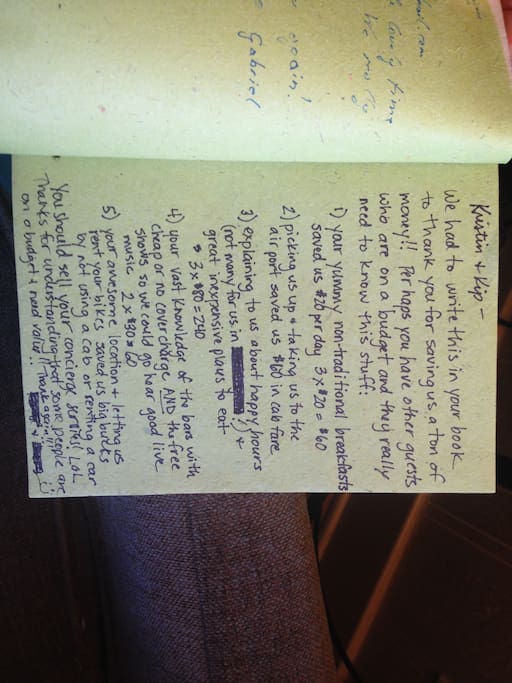 mail.com
long time
again!
Gabriel
Kristin + Kip -
We had to write this in your book
to thank you for saving us a ton of
money!! Perhaps you have other guests
who are on a budget and they really
need to know this stuff:
1) your yummy non-traditional breakfasts
saved us $20 per day 3 x $20 = $60
2) picking us up + taking us to the
airport saved us $60 in cab fare
3) explaining to us about happy hours
(not many for us in
great inexpensive places to eat
3 x $80 = 240
4) your vast knowledge of the bars with
cheap or no cover charge AND the free
shows so we could go hear good live
music 2 x $30 = 60
5) your awesome location + letting us
rent your bikes saved us big bucks
by not using a cab or renting a car
You should sell your concierge services LOL
Thanks for understanding that some people are
on a budget + need value!! Thank again!!!